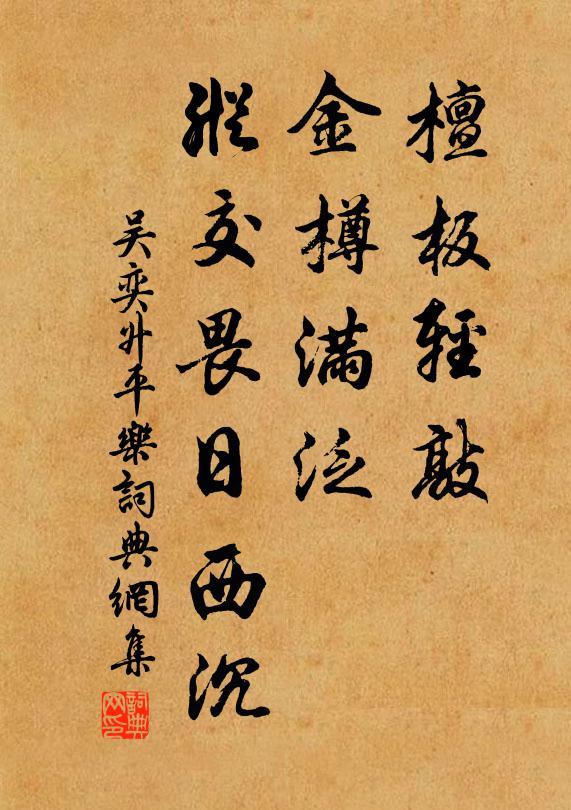 檀板輕敲
金樽滿泛
縱交畏日西沉
吴奕升平樂詞典網集
詞典
网印